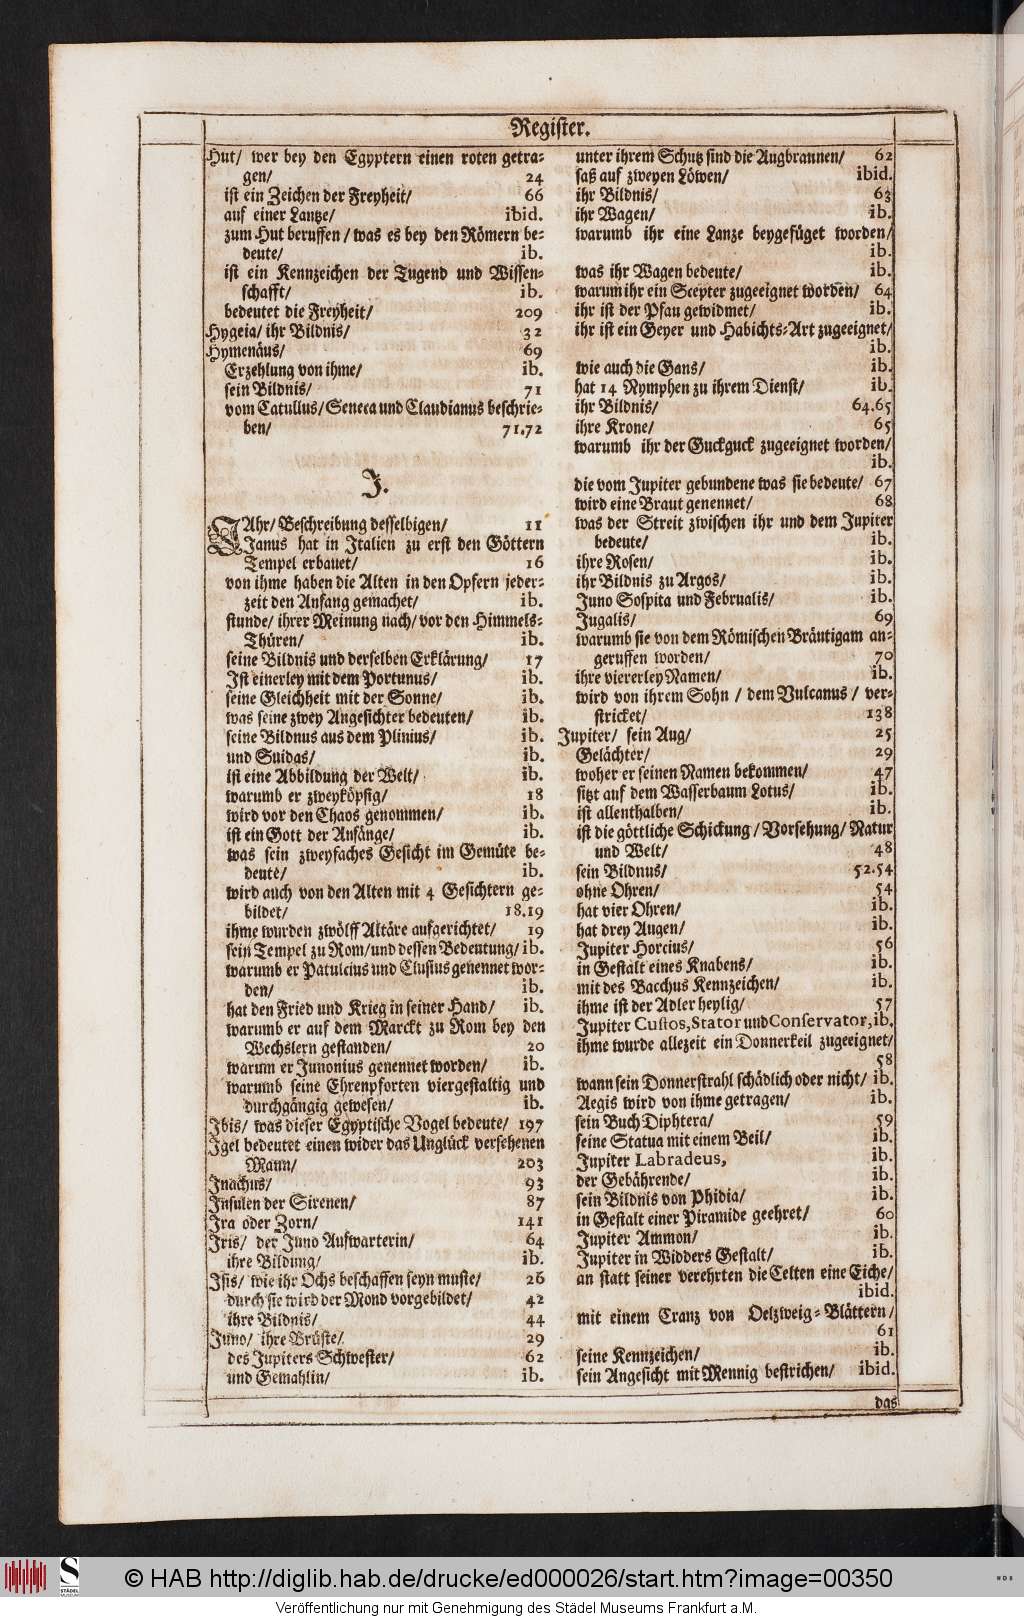 Register.
Hut/ wer bey den Egyptern einen roten getra-
gen/ 24
ist ein Zeichen der Freyheit/ 66
auf einer Lantze/ ibid.
zum Hut beruffen / was es bey den Römern be-
deute/ ib.
ist ein Kennzeichen der Tugend und Wissen-
schafft/ ib.
bedeutet die Freyheit/ 209
Hygeia/ ihr Bildnis/ 32
Hymenäus/ 69
Erzehlung von ihme/ ib.
sein Bildnis/ 71
vom Catullus/ Seneca und Claudianus beschrie-
ben/ 71.72
J.
JAhr/ Beschreibung desselbigen/ 11
Janus hat in Italien zu erst den Göttern
Tempel erbauet/ 16
von ihme haben die Alten in den Opfern jeder-
zeit den Anfang gemachet/ ib.
stunde/ ihrer Meinung nach/ vor den Himmels-
Thüren/ ib.
seine Bildnis und derselben Erklärung/ 17
Ist einerley mit dem Portunus/ ib.
seine Gleichheit mit der Sonne/ ib.
was seine zwey Angesichter bedeuten/ ib.
seine Bildnus aus dem Plinius/ ib.
und Suidas/ ib.
ist eine Abbildung der Welt/ ib.
warumb er zweyköpfig/ 18
wird vor den Chaos genommen/ ib.
ist ein Gott der Anfänge/ ib.
was sein zweyfaches Gesicht im Gemüte be-
deute/ ib.
wird auch von den Alten mit 4 Gesichtern ge-
bildet/ 18.19
ihme wurden zwölff Altäre aufgerichtet/ 19
sein Tempel zu Rom/ und dessen Bedeutung/ ib.
warumb er Patulcius und Clusius genennet wor-
den/ ib.
hat den Fried und Krieg in seiner Hand/ ib.
warumb er auf dem Marckt zu Rom bey den
Wechslern gestanden/ 20
warum er Junonius genennet worden/ ib.
warumb seine Ehrenpforten viergestaltig und
durchgängig gewesen/ ib.
Ibis/ was dieser Egyptische Vogel bedeute/ 197
Igel bedeutet einen wider das Unglück versehenen
Mann/ 203
Inachus/ 93
Insulen der Sirenen/ 87
Ira oder Zorn/ 141
Iris/ der Juno Aufwarterin/ 64
ihre Bildung/ ib.
Isis/ wie ihr Ochs beschaffen seyn muste/ 26
durch sie wird der Mond vorgebildet/ 42
ihre Bildnis/ 44
Juno/ ihre Brüste/ 29
des Jupiters Schwester/ 62
und Gemahlin/ ib.
unter ihrem Schutz sind die Augbrannen/ 62
saß auf zweyen Löwen/ ibid.
ihr Bildnis/ 63
ihr Wagen/ ib.
warumb ihr eine Lanze beygefüget worden/
ib.
was ihr Wagen bedeute/ ib.
warum ihr ein Scepter zugeeignet worden/ 64
ihr ist der Pfau gewidmet/ ib.
ihr ist ein Geyer und Habichts-Art zugeeignet/
ib.
wie auch die Gans/ ib.
hat 14 Nymphen zu ihrem Dienst/ ib.
ihr Bildnis/ 64.65
ihre Krone/ 65
warumb ihr der Guckguck zugeeignet worden/
ib.
die vom Jupiter gebundene was sie bedeute/ 67
wird eine Braut genennet/ 68
was der Streit zwischen ihr und dem Jupiter
bedeute/ ib.
ihre Rosen/ ib.
ihr Bildnis zu Argos/ ib.
Juno Sospita und Februalis/ ib.
Jugalis/ 69
warumb sie von dem Römischen Bräutigam an-
geruffen worden/ 70
ihre viererley Namen/ ib.
wird von ihrem Sohn / dem Vulcanus / ver-
stricket/ 138
Jupiter/ sein Aug/ 25
Gelächter/ 29
woher er seinen Namen bekommen/ 47
sitzt auf dem Wasserbaum Lotus/ ib.
ist allenthalben/ ib.
ist die göttliche Schickung / Vorsehung/ Natur
und Welt/ 48
sein Bildnus/ 52.54
ohne Ohren/ 54
hat vier Ohren/ ib.
hat drey Augen/ ib.
Jupiter Horcius/ 56
in Gestalt eines Knabens/ ib.
mit des Bacchus Kennzeichen/ ib.
ihme ist der Adler heylig/ 57
Jupiter Custos, Stator und Conservator, ib.
ihme wurde allezeit ein Donnerkeil zugeeignet/
58
wann sein Donnerstrahl schädlich oder nicht/ ib.
Aegis wird von ihme getragen/ ib.
sein Buch Diphtera/ 59
seine Statua mit einem Beil/ ib.
Jupiter Labradeus, ib.
der Gebährende/ ib.
sein Bildnis von Phidia/ ib.
in Gestalt einer Piramide geehret/ 60
Jupiter Ammon/ ib.
Jupiter in Widders Gestalt/ ib.
an statt seiner verehrten die Celten eine Eiche/
ibid.
mit einem Cranz von Oelzweig-Blättern/
61
seine Kennzeichen/ ib.
sein Angesicht mit Mennig bestrichen/ ibid.
das
© HAB http://diglib.hab.de/drucke/ed000026/start.htm?image=00350
Veröffentlichung nur mit Genehmigung des Städel Museums Frankfurt a.M.
STÄDEL
MUSEUM
HAB